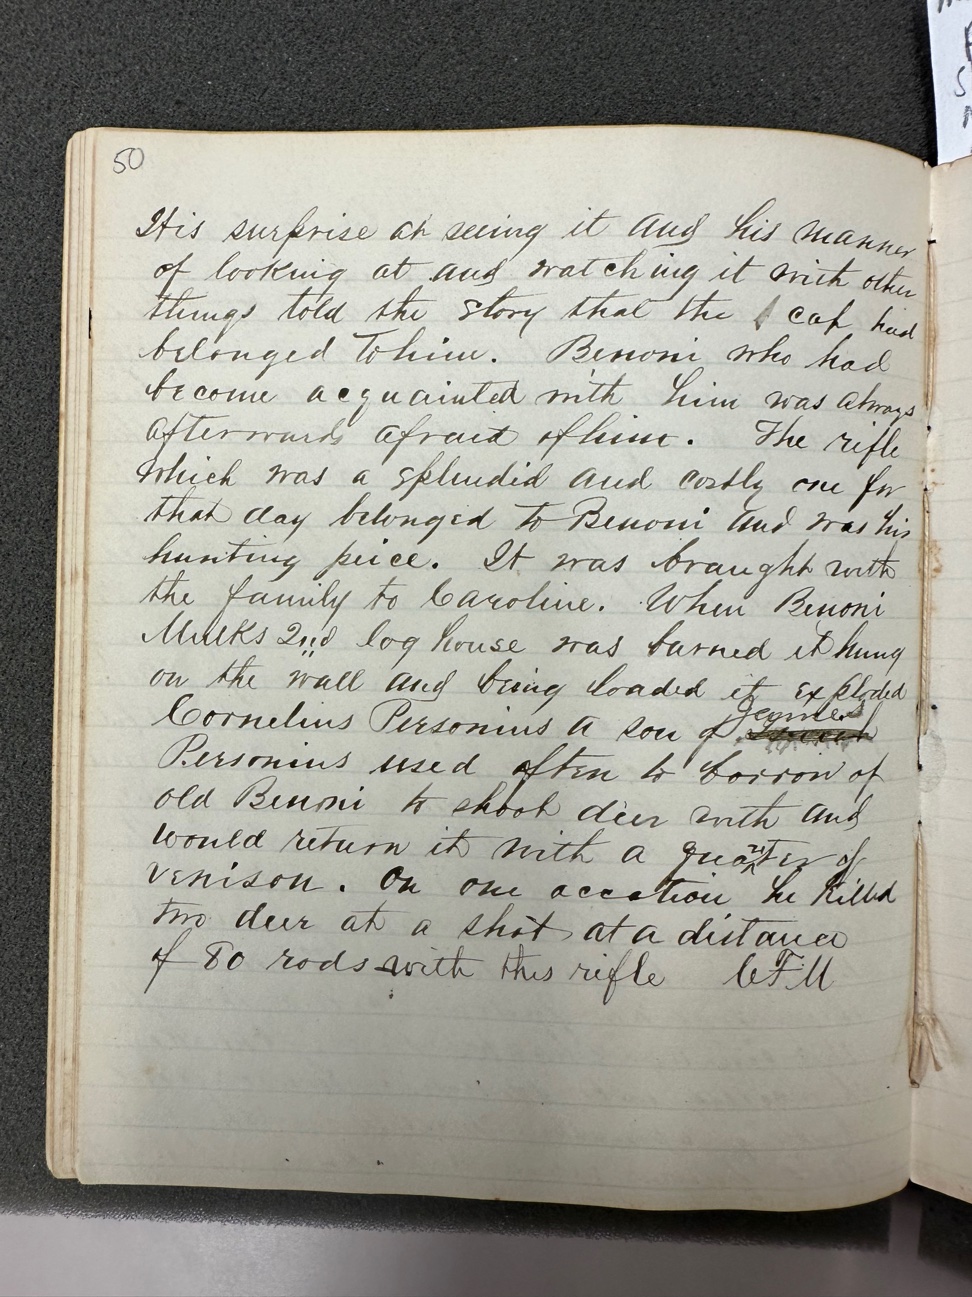 50
His surprise at seeing it and his manner
of looking at and watching it with other
things told the story that the cap had
belonged to him. Benoni who had
become acquainted with him was always
afterwards afraid of him. The rifle
which was a splendid and costly one for
that day belonged to Benoni and was his
hunting peice. It was braught with
the family to Caroline. When Benoni
Mulks 2nd log house was burned it hung
on the wall and being loaded it exploded
James
Cornelius Personius a son of
Personius used often to borrow of
old Benoni to shoot deer with and
would return it with a quarter of
venison. On one occation he killed
two deer at a shot at a distance
of 80 rods with this rifle CFM